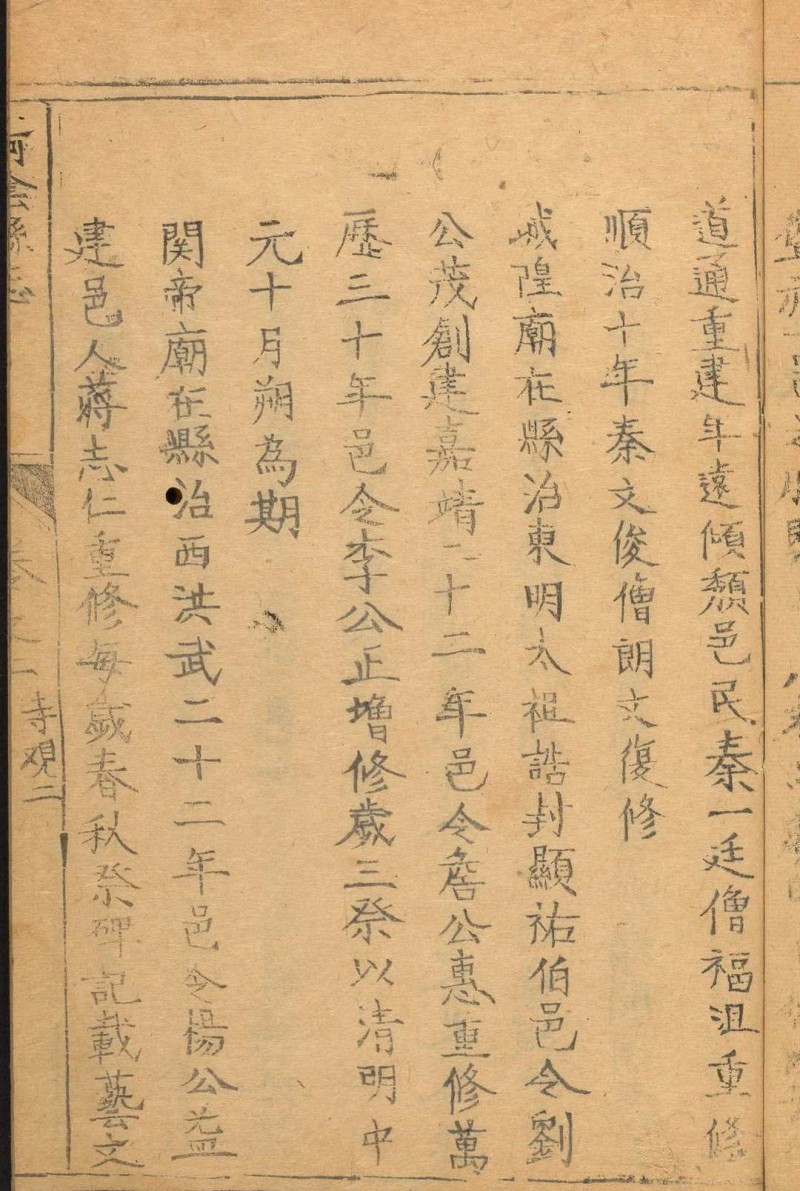 道通重建年遠傾頹邑民秦一廷僧福沮重修
順治十年秦文俊僧朗文復修
城隍廟在縣治東明太祖誥封顯祐伯邑令劉
公茂創建嘉靖二十二年邑令詹公惠重修萬
歷三十年邑令李公正增修歲三祭以清明中
元十月朔為期
関帝廟在縣治西洪武二十二年邑令楊公益
建邑人蔣志仁重修每歲春秋祭碑記載藝文
河陰縣志
卷之二
寺觀二